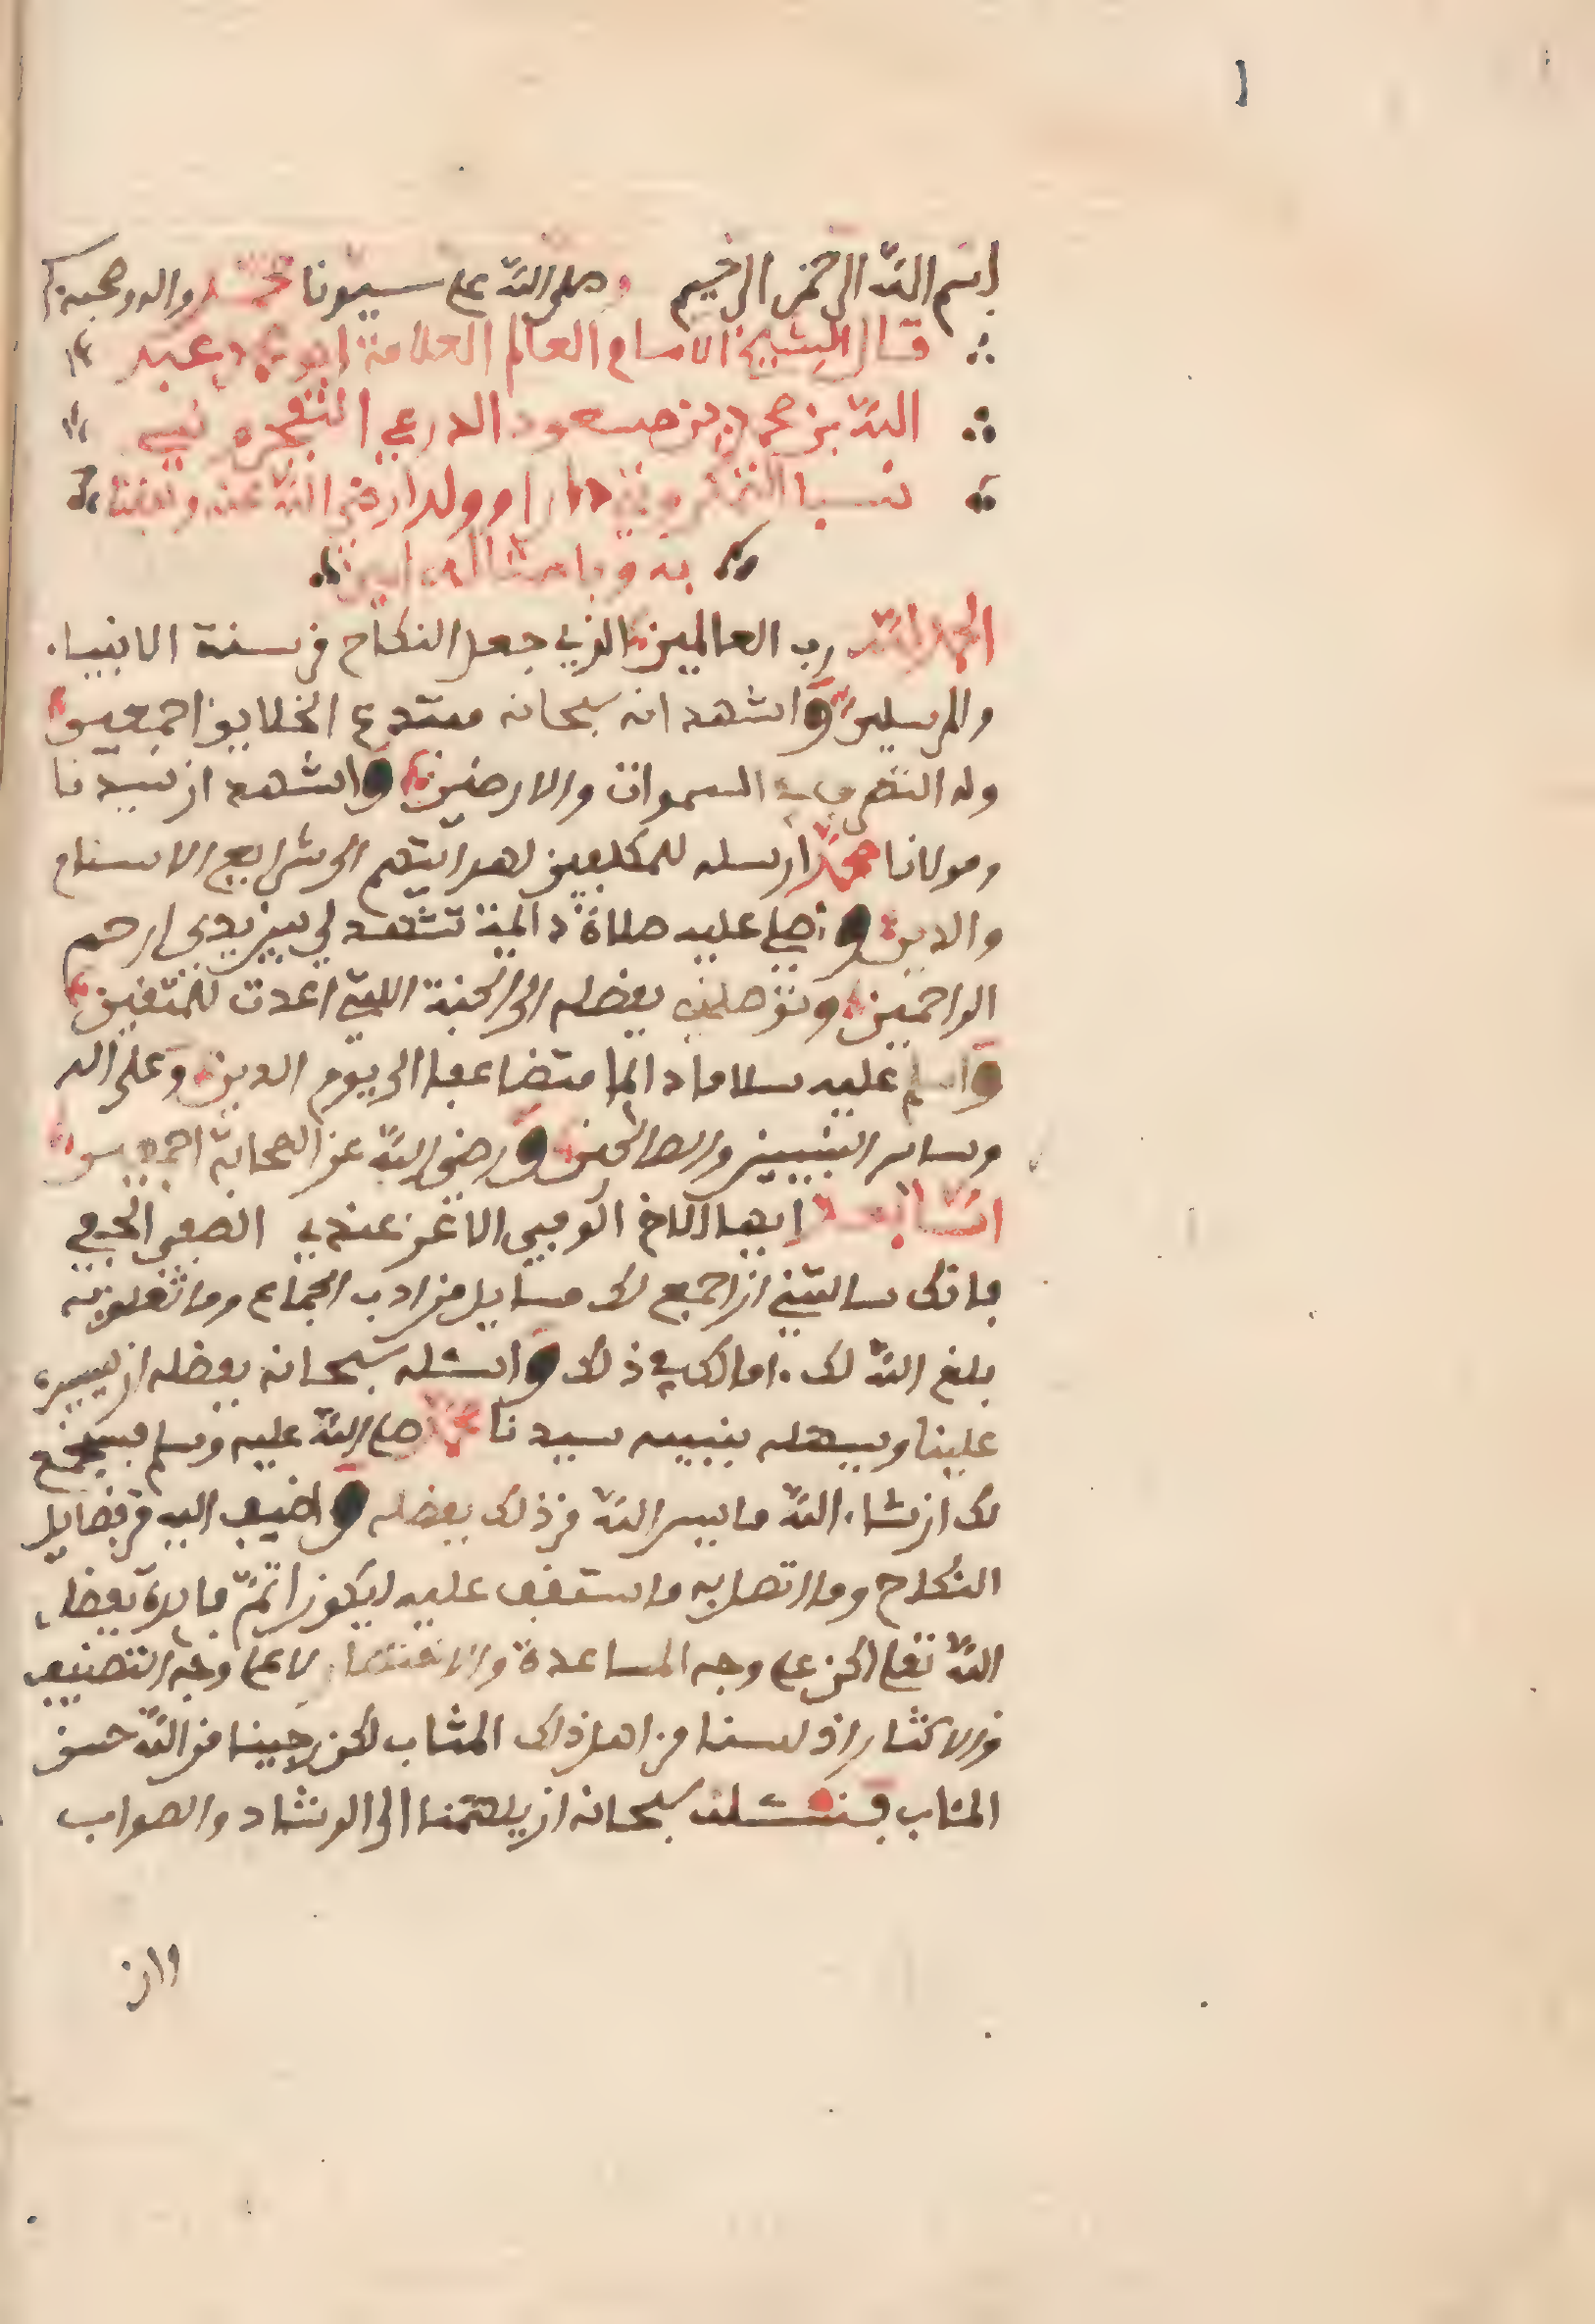 بسم الله الرحمن الرحيم وصلى الله على سيدنا محمد واله وصحبه
قال الشيخ الامام العالم العلامة ابو محمد عبد
الله بن مسعود الدرعي
نسبا دارا وولدا رضي الله عنه ونفعنا
به وبامثاله امين
الحمد لله رب العالمين الذي جعل النكاح من سنة الانبياء
والمرسلين واشهد انه سبحانه مبتدع الخلايق اجمعين
وله التصرف في السموات والارضين واشهد ان سيدنا
ومولانا محمدا ارسله للمكلفين لهدايتهم الى شرايع الاسلام
والدين واصلي عليه صلاة دائمة تشهد لي بين يدي ارحم
الراحمين وتوصلني بفضله الى الجنة اللتي اعدت للمتقين
واسلم عليه سلاما دائما متضاعفا الى يوم الدين وعلى اله
وساير النبيين والصالحين ورضي الله عن الصحابة اجمعين
اما بعد ايها الاخ الاعز عندي الصفي
فانك سالتني ان اجمع لك مسايل من اداب الجماع وما تعلق به
بلغ الله لك امالك في ذلك واسئله سبحانه بفضله ان ييسره
علينا ويسهله بنبيه سيدنا محمد صلى الله عليه وسلم فسنجمع
لك ان شاء الله ما ييسر الله من ذلك بفضله واضيف اليه من فضايل
النكاح وما اتصل به ما ستقف عليه ليكون اتم فايدة بفضل
الله تعلى لكن على وجه المساعدة والاختصار لا على وجه التصنيف
والاكثار اذ لسنا من اهل ذلك المثاب لكن رجينا من الله حسن
المئاب فنسئله سبحانه ان يلهمنا الى الرشاد والصواب
وان